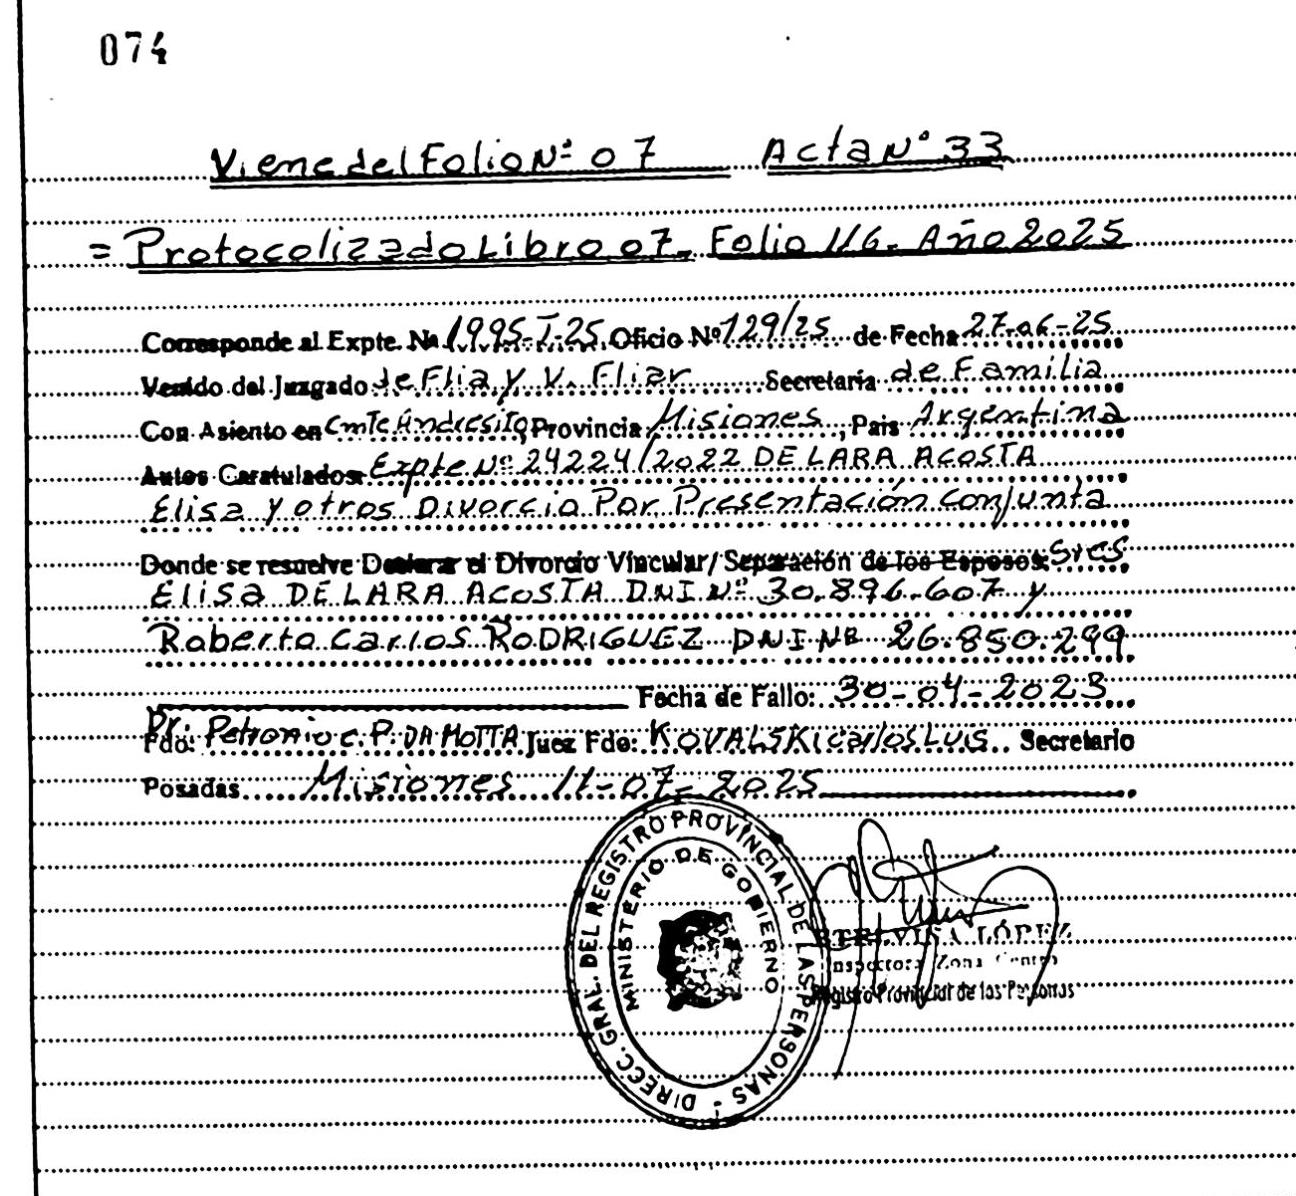 074
Viene del Folio Nº 07 Acta Nº 33
= Protocolizado Libro 07. Folio 116. Año 2025
Corresponde al Expte. Nº 1995-I-25 Oficio Nº 729/25 de Fecha 27-06-25
Venido del Juzgado de Flia y V. Fliar Secretaría de Familia
Con Asiento en Cmte Andresito, Provincia Misiones, Pais Argentina
Autos Caratulados: Expte Nº 24224/2022 DE LARA ACOSTA
Elisa y otros Divorcio Por Presentación Conjunta
Donde se resuelve Declarar el Divorcio Vincular/ Separación de los Esposos: Sres
Elisa DE LARA ACOSTA DNI Nº 30.896.607 y
Roberto Carlos RODRIGUEZ DNI Nº 26.850.299
Fecha de Fallo: 30-04-2023
Fdo: Dr. Petronio C. P. DA MOTTA Juez Fdo: KOVALSKI Carlos LUIS Secretario
Posadas Misiones 11-07-2025
DIRECC. GRAL. DEL REGISTRO PROVINCIAL DE LAS PERSONAS -
MINISTERIO DE GOBIERNO
LÓPEZ
Inspectora Zona Centro
Registro Provincial de las Personas